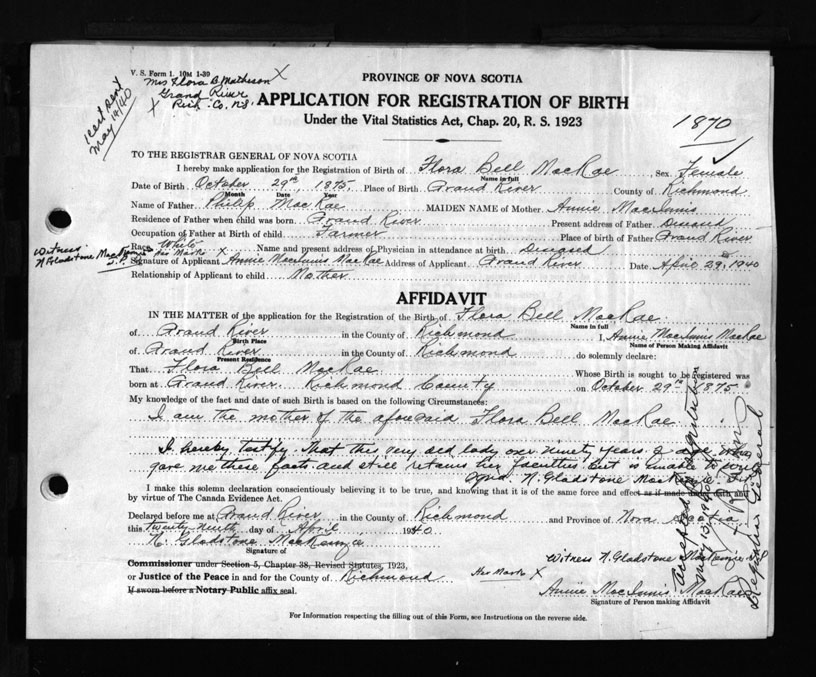 V. S. Form 1. 10M 1-39
Mrs Flora B. Matheson X
Grand River
X Rich. Co. N.S.
Cert sent
May 14/40
PROVINCE OF NOVA SCOTIA
APPLICATION FOR REGISTRATION OF BIRTH
Under the Vital Statistics Act, Chap. 20, R. S. 1923
1870
TO THE REGISTRAR GENERAL OF NOVA SCOTIA
I hereby make application for the Registration of Birth of Flora Bell MacRae Sex Female
Name in full
Date of Birth October 29th 1875 Place of Birth Grand River County of Richmond
Month Date Year
Name of Father Philip MacRae MAIDEN NAME of Mother Annie MacInnis
Residence of Father when child was born Grand River Present address of Father Deceased
Occupation of Father at Birth of child Farmer Place of birth of Father Grand River
Race White Name and present address of Physician in attendance at birth Deceased
Witness
N Gladstone MacKenzie J.P.
her Mark X
Signature of Applicant Annie MacInnis MacRae Address of Applicant Grand River Date April 29, 1940
Relationship of Applicant to child Mother
AFFIDAVIT
IN THE MATTER of the application for the Registration of the Birth of Flora Bell MacRae
Name in full
of Grand River in the County of Richmond I, Annie MacInnis MacRae
Birth Place Name of Person Making Affidavit
of Grand River in the County of Richmond do solemnly declare:
Present Residence
That Flora Bell MacRae Whose Birth is sought to be registered was
born at Grand River Richmond County on October 29th 1875
My knowledge of the fact and date of such Birth is based on the following Circumstances:
I am the mother of the aforesaid Flora Bell MacRae.
I hereby testify that this very old lady over ninety years of age who
gave me these facts and still retains her faculties. But is unable to write
N. Gladstone MacKenzie J.P.
I make this solemn declaration conscientiously believing it to be true, and knowing that it is of the same force and effect as if made under oath and
by virtue of The Canada Evidence Act.
Declared before me at Grand River in the County of Richmond and Province of Nova Scotia
this twenty ninth day of April 1940
N. Gladstone MacKenzie
Signature of
Commissioner under Section 5, Chapter 38, Revised Statutes, 1923,
or Justice of the Peace in and for the County of Richmond
If sworn before a Notary Public affix seal.
Witness N. Gladstone MacKenzie J.P.
Her Mark X
Annie MacInnis MacRae
Signature of Person making Affidavit
Accepted for Registration
May 13, 1940
Registrar General
For Information respecting the filling out of this Form, see Instructions on the reverse side.